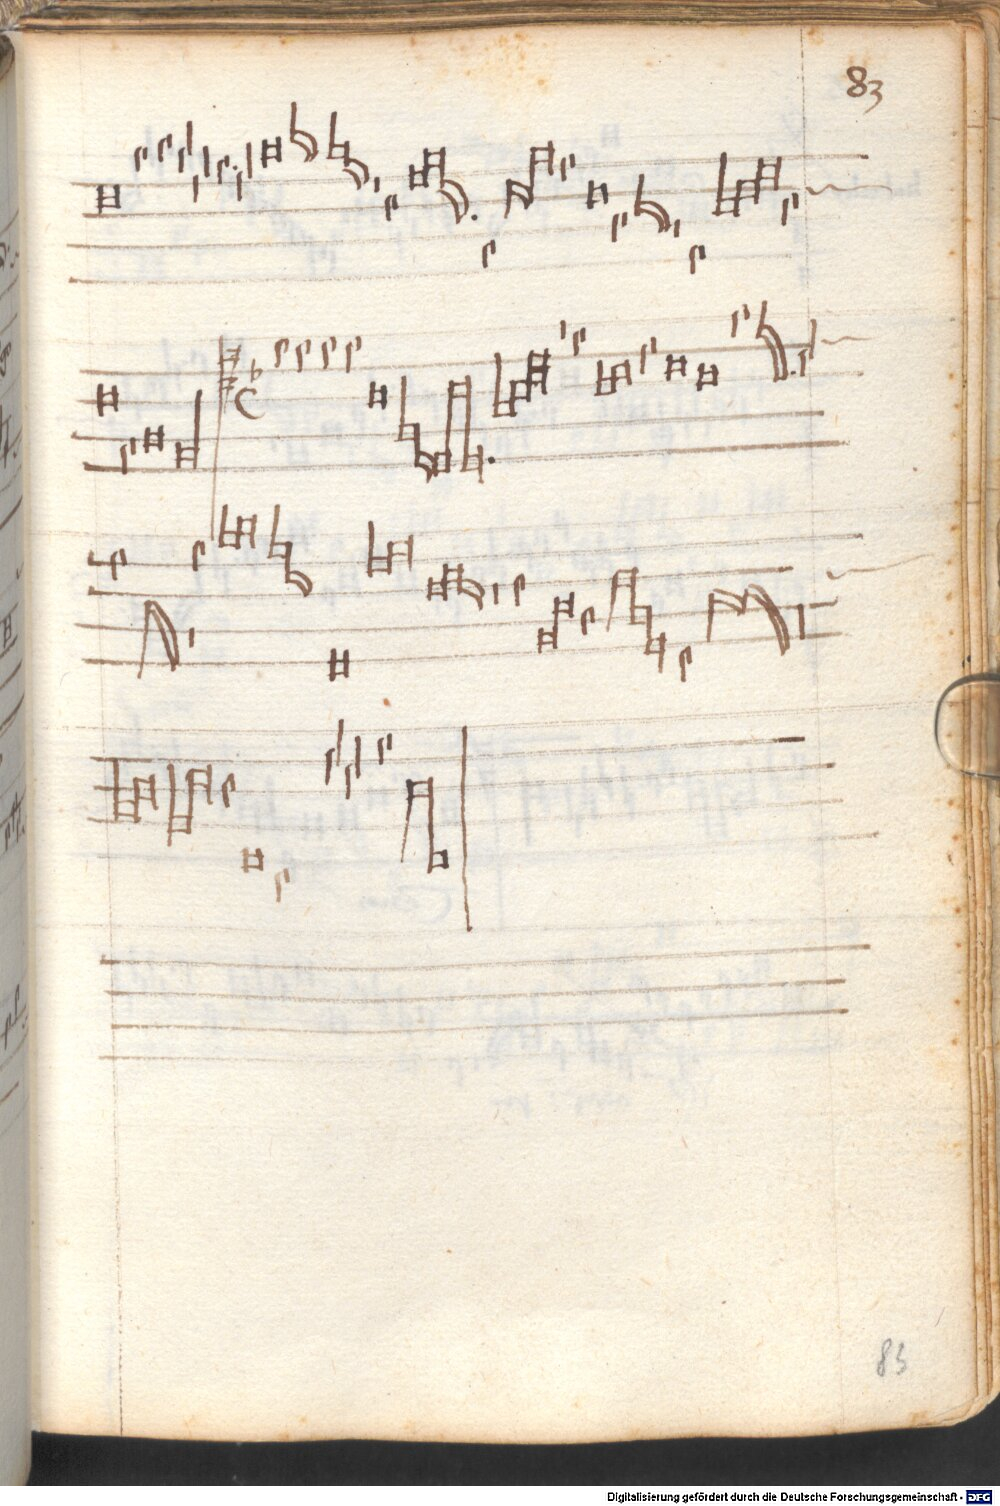 83
83
Digitalisierung gefördert durch die Deutsche Forschungsgemeinschaft - DFG